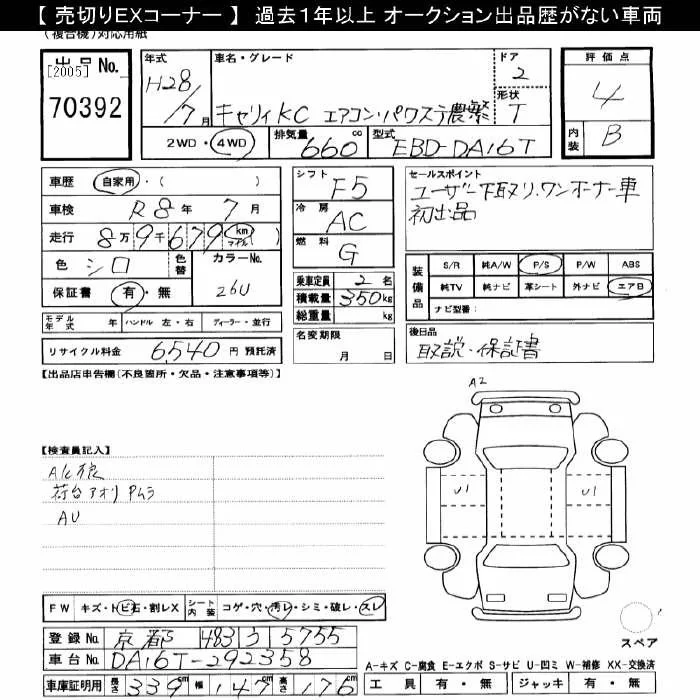 【 売切りEXコーナー 】 過去1年以上 オークション出品歴がない車両
(複合機)対応用紙
出品No.
[2005]
70392
年式
H28/7月
車名・グレード
キャリイKC エアコン・パワステ農繁
ドア
2
形状
T
2WD・4WD
排気量
660cc
型式
EBD-DA16T
評価点
4
内装
B
車歴 自家用・( )
車検 R8年7月
走行 8万9千679km マイル
色 シロ 色替
カラーNo.
26U
保証書 有・無
モデル年式 年 ハンドル 左・右 ディーラー・並行
リサイクル料金 6,540円 預託済
シフト
F5
冷房
AC
燃料
G
乗車定員 2名
積載量 350kg
総重量 kg
名変期限
月 日
セールスポイント
ユーザー下取り、ワンオーナー車
初出品
装備品
S/R 純A/W P/S P/W ABS
純TV 純ナビ 革シート 外ナビ エアB
ナビ型番:
後日品
取説・保証書
【出品店申告欄(不良箇所・欠品・注意事項等)】
【検査員記入】
荷台アオリ
AU
A2
U1
U1
スペア
FW キズ・トビ石・割レX シート内装 コゲ・穴・汚レ・シミ・破レ・スレ
登録No. 京都 483 う 5755
車台No. DA16T-292358
車庫証明用 長さ 339cm 幅 147cm 高さ 176cm
A-キズ C-腐食 E-エクボ S-サビ U-凹ミ W-補修 XX-交換済
工具 有・無 ジャッキ 有・無